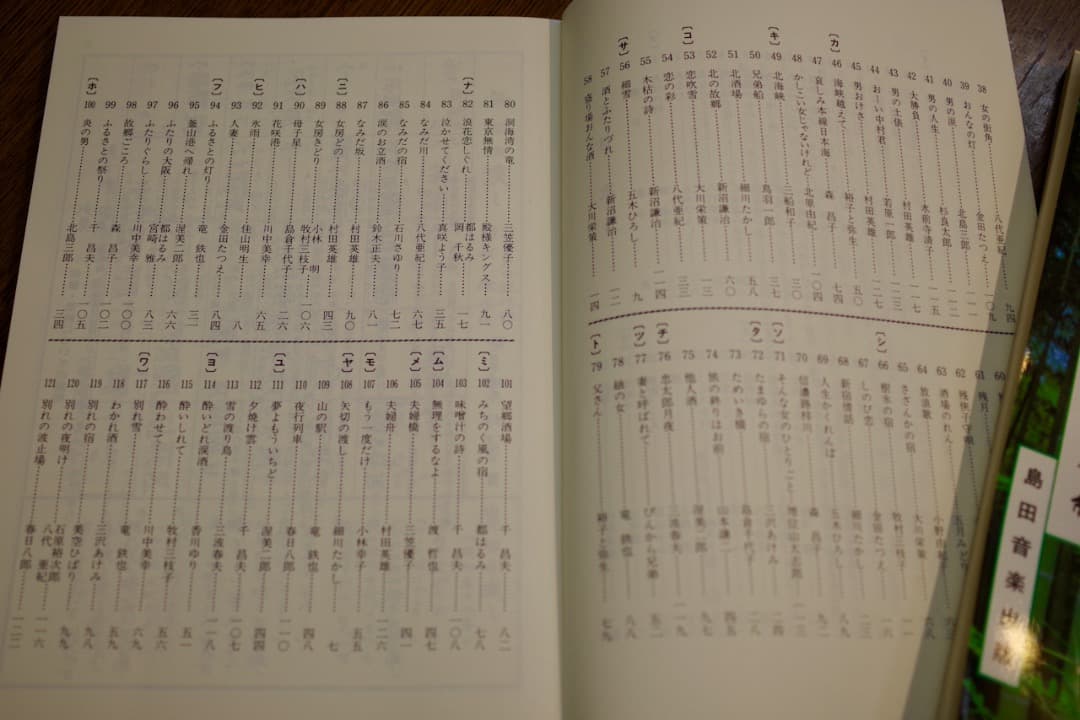 〔カ〕
38 女の街角 八代亜紀 九四
39 おんなの灯 金田たつえ 一〇九
40 男の涙 北島三郎 一一一
41 男の人生 杉良太郎 一一五
42 大勝負 水前寺清子 一二一
43 男の土俵 村田英雄 一二三
44 おーい中村君 若原一郎 一一七
45 男おけさ 村田英雄
46 海峡越えて 裕子と弥生 五〇
47 哀しみ本線日本海 森昌子 一〇四
48 かしこい女じゃないけれど 北原由紀 三〇
〔キ〕
49 北海峡 三船和子 三七
50 兄弟船 鳥羽一郎 五八
51 北酒場 細川たかし 六〇
52 北の故郷 新沼謙治
〔コ〕
53 恋吹雪 大川栄策
54 恋の彩 八代亜紀 三三
55 木枯の詩 新沼謙治 一一四
〔サ〕
56 細雪 五木ひろし 九
57 酒とふたりづれ 新沼謙治 一二
58 盛り場おんな酒 大川栄策 一四
60
61 残月
62 残侠子守唄
63 酒場のれん
64 放浪歌
65 さざんかの宿 大川栄策
〔シ〕
66 根氷の宿 牧村三枝子
67 しのび恋 金田たつえ
68 新宿情話 細川たかし 八九
69 人生かくれんぼ 五木ひろし
70 信濃路梓川 森昌子 九二
〔ソ〕
71 そんな女のひとりごと 増位山太志郎
〔タ〕
72 たまゆらの宿 三沢あけみ 二八
73 ためいき橋 島倉千代子 七二
74 旅の終りはお前 山本譲二
75 他人酒 渥美二郎 九七
〔チ〕
76 恋太郎月夜 三波春夫 一一九
〔ツ〕
77 妻と呼ばれて ぴんから兄弟
78 紬の女 竜鉄也 八八
〔ト〕
79 父さん 裕子と弥生 七九
80 洞海湾の竜 三笠優子 八〇
81 東京無情 殿様キングス 九一
〔ナ〕
82 浪花恋しぐれ 都はるみ 岡千秋 一七
83 泣かせてください 真咲よう子 三五
84 なみだ川 八代亜紀 六七
85 なみだの宿 石川さゆり 七二
86 涙のお立酒 鈴木正夫 八一
87 なみだ坂 村田英雄 九〇
〔ニ〕
88 女房どの 村田英雄 四三
89 女房きどり 小林明 牧村三枝子 一〇六
〔ハ〕
90 母子星 島倉千代子 二六
91 花咲港 川中美幸 六五
〔ヒ〕
92 氷雨 住山明生 八
93 人妻 金田たつえ 八四
〔フ〕
94 ふるさとの灯り 竜鉄也 三一
95 釜山港へ帰れ 渥美二郎 六六
96 ふたりの大阪 都はるみ 宮崎雅 八三
97 ふたりぐらし 川中美幸 一〇〇
98 故郷ごころ 森昌子 一〇二
99 ふるさとの祭り 千昌夫 一〇五
〔ホ〕
100 炎の男 北島三郎 三四
101 望郷酒場 千昌夫 八二
〔ミ〕
102 みちのく風の宿 都はるみ 七八
103 味噌汁の詩 千昌夫 一〇八
〔ム〕
104 無理をするなよ 渡哲也 四七
〔メ〕
105 夫婦橋 三笠優子 四一
106 夫婦舟 村田英雄 一二六
〔モ〕
107 もう一度だけ 小林幸子 五五
〔ヤ〕
108 矢切の渡し 細川たかし 七
109 山の駅 竜鉄也 四八
110 夜行列車 春日八郎 一一〇
〔ユ〕
111 夢よもういちど 渥美二郎 四四
112 夕焼け雲 千昌夫 一〇七
113 雪の渡り鳥 三波春夫
〔ヨ〕
114 酔いどれ涙酒 香川ゆり 五一
115 酔いしれて 牧村三枝子 五六
116 酔わせて 川中美幸 六九
〔ワ〕
117 別れ雪 竜鉄也 五九
118 わかれ酒 三沢あけみ 九八
119 別れの宿 美空ひばり 九九
120 別れの夜明け 石原裕次郎 八代亜紀 一一六
121 別れの波止場 春日八郎 一二二
島田音楽出版